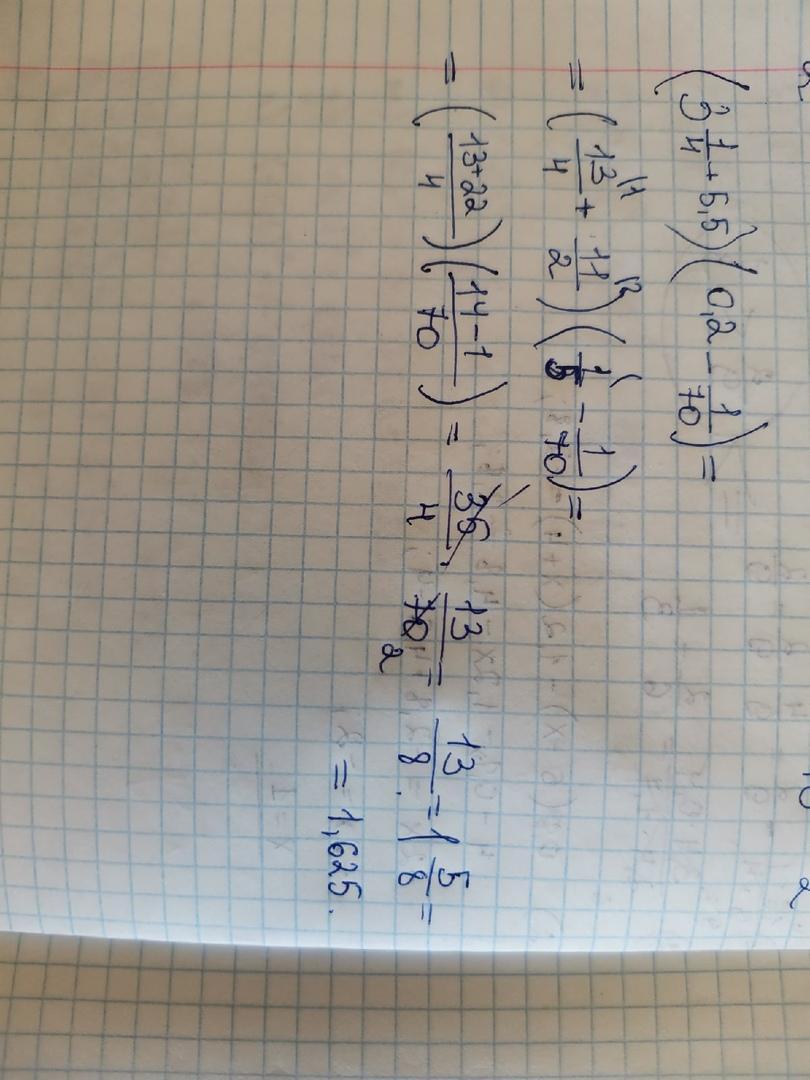 (3 1/4 + 5,5)(0,2 - 1/70) =
= (13/4 + 11/2)(1/5 - 1/70) =
= ((13+22)/4)((14-1)/70) = 35/4 · 13/70 2 = 13/8 = 1 5/8 =
= 1,625.